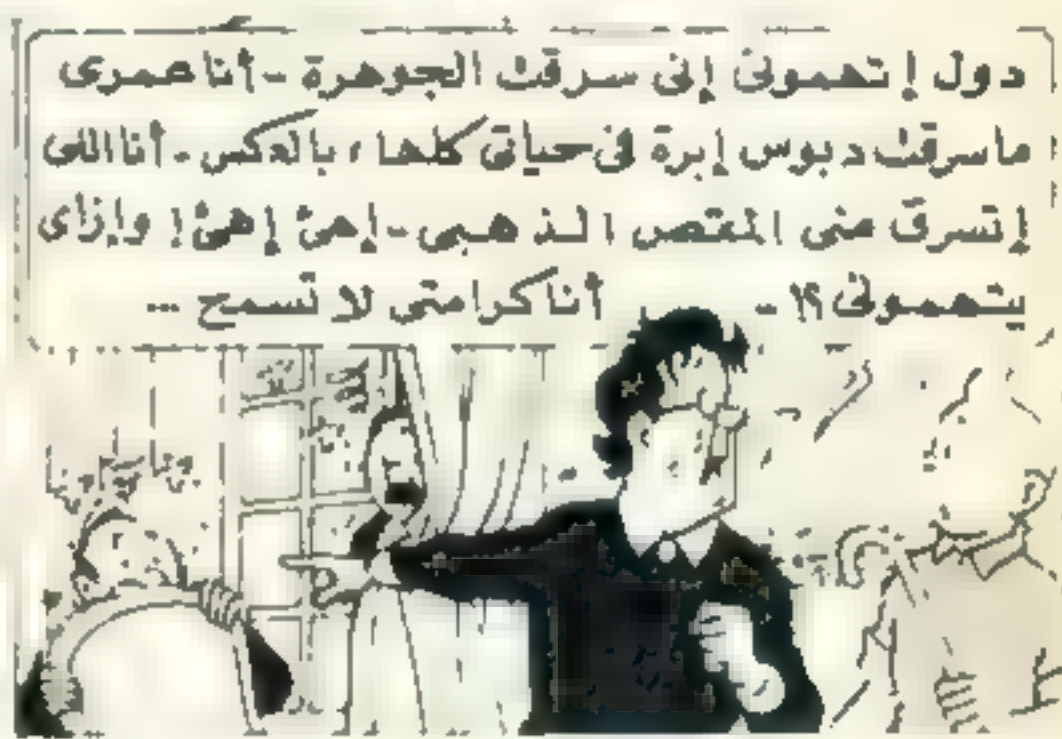 دول إتهمونى إنى سرقت الجوهرة - أنا عمرى
ما سرقت دبوس إبرة فى حياتى كلها ، بالعكس - أنا اللى
إتسرق منى المقص الذهبى - إهئ إهئ ! وإزاى
يتهمونى ؟! - أنا كرامتى لا تسمح ...